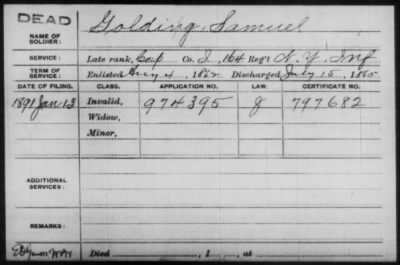 DEAD
Golding, Samuel
NAME OF SOLDIER:
SERVICE: Late rank, Corp Co. I, 164 Reg't N. Y. Inf
TERM OF SERVICE: Enlisted Aug 4, 1862 Discharged July 15, 1865
DATE OF FILING. CLASS. APPLICATION NO. LAW. CERTIFICATE NO.
1891 Jan 13 Invalid, 974395 G 797682
Widow,
Minor,
ADDITIONAL SERVICES:
REMARKS:
Died , 1 , at